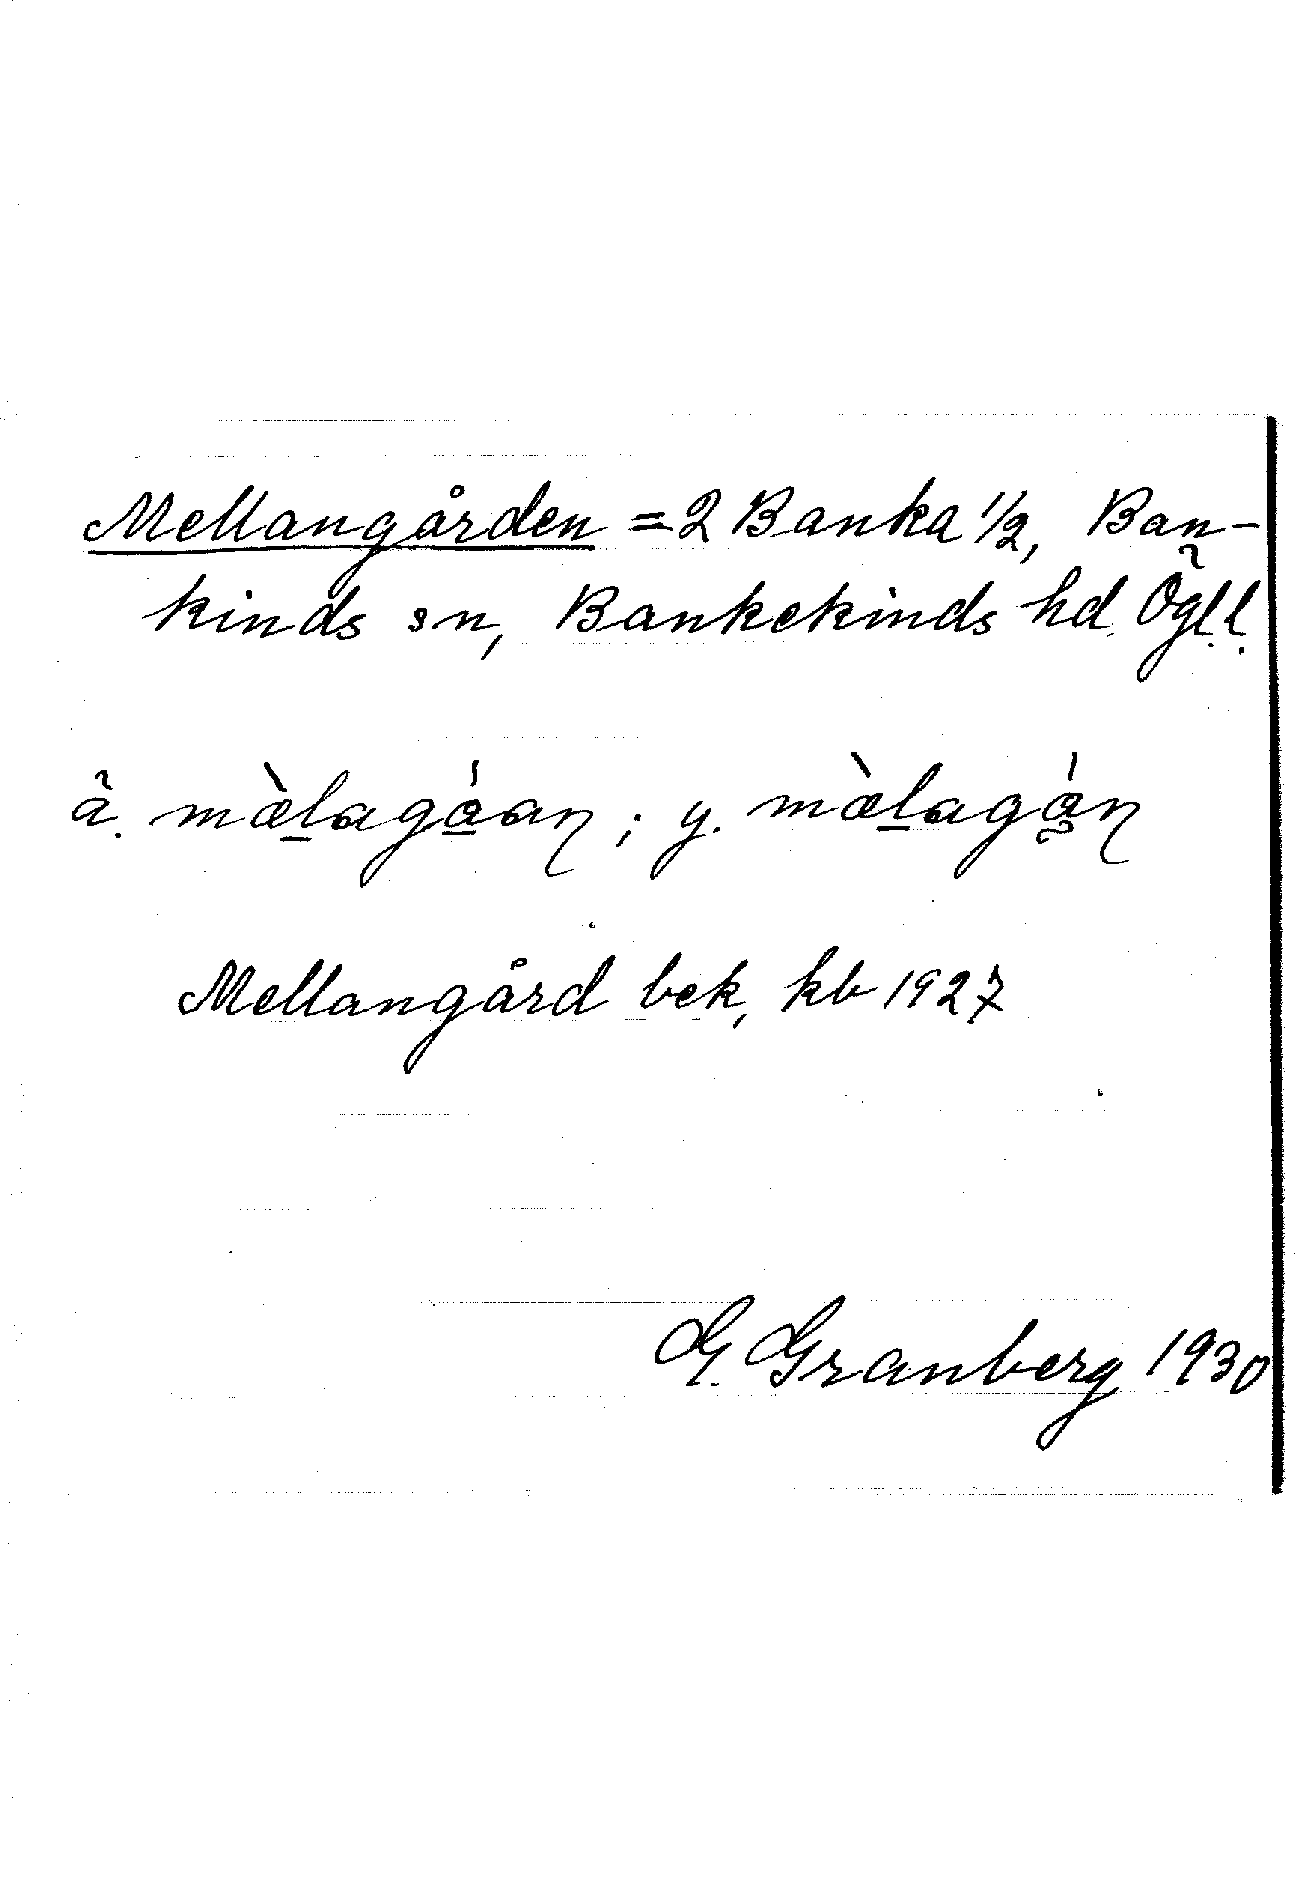 Mellangården = 2 Banka 1/2, Ban-
kinds sn, Bankekinds hd. Ögl.l.
ä. mæ̀l̠agá̠an ; y. mæ̀l̠agá̰n
Mellangård bek, kb 1927
G. Granberg 1930